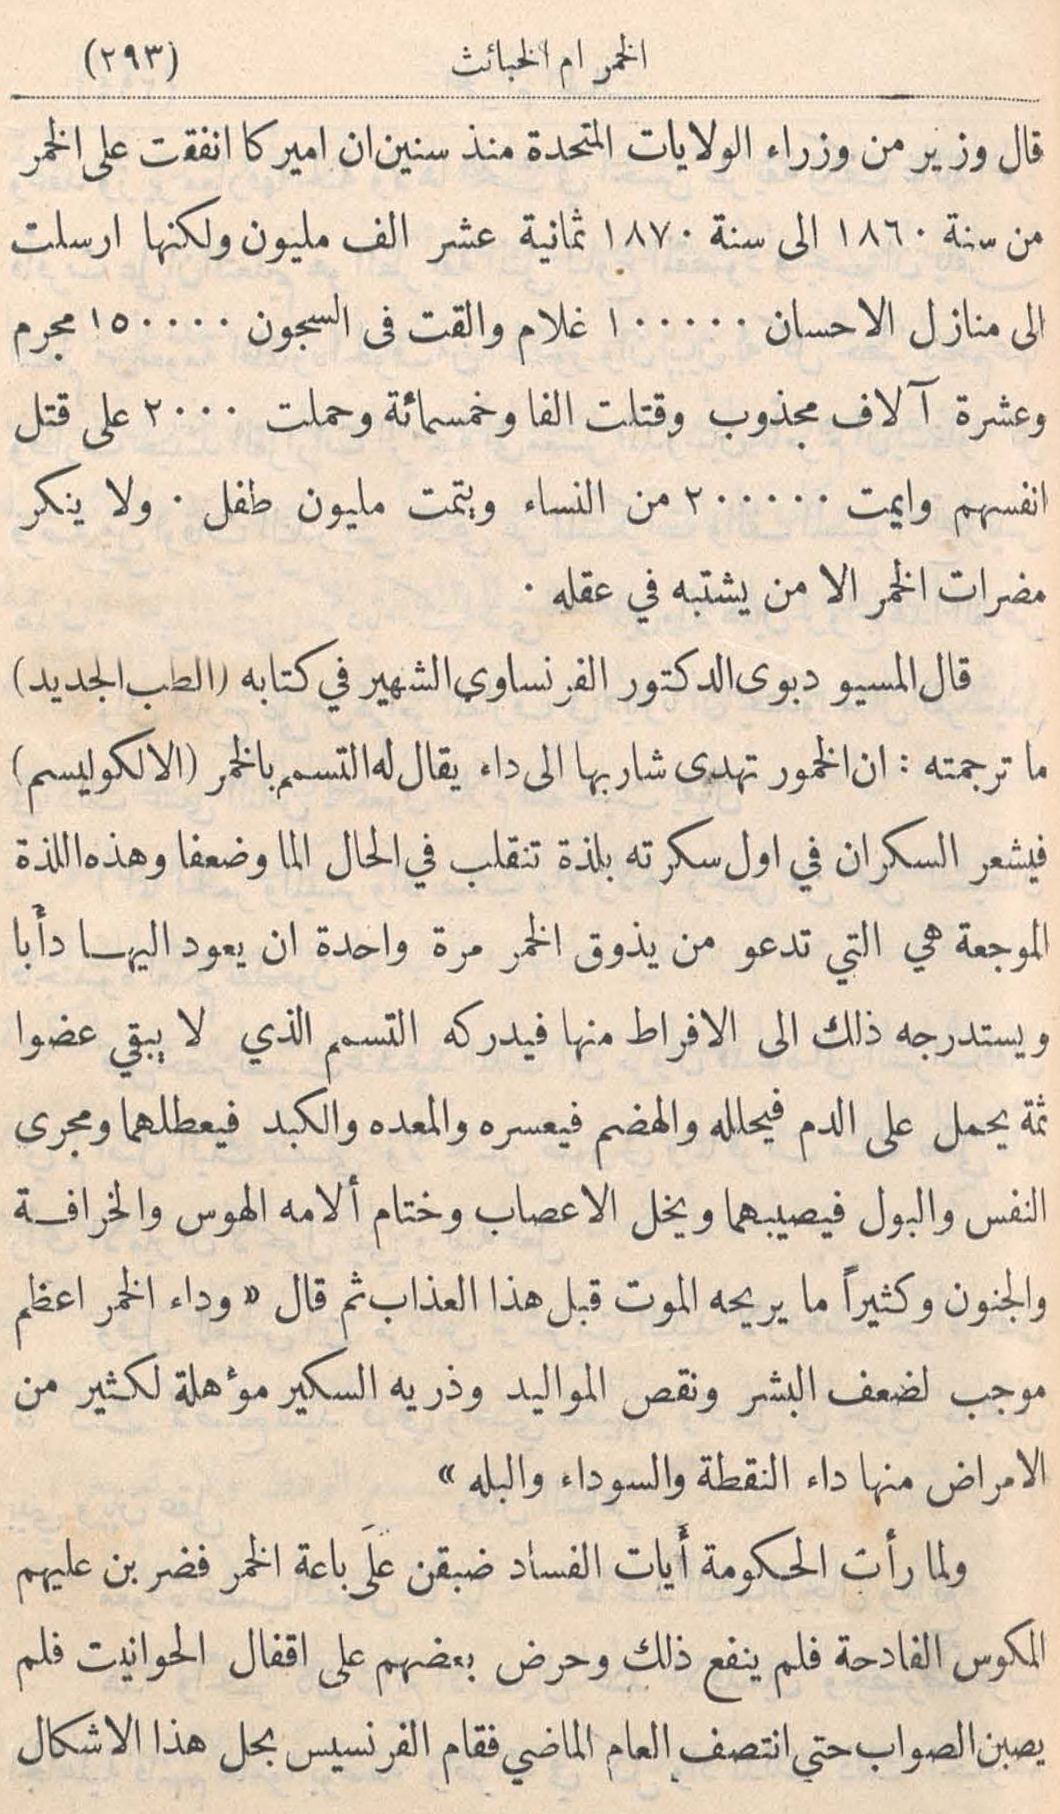 الخمر ام الخبائث (٢٩٣)
قال وزير من وزراء الولايات المتحدة منذ سنين ان اميركا انفقت على الخمر
من سنة ١٨٦٠ الى سنة ١٨٧٠ ثمانية عشر الف مليون ولكنها ارسلت
الى منازل الاحسان ١٠٠٠٠٠ غلام والقت فى السجون ١٥٠٠٠٠ مجرم
وعشرة آلاف مجذوب وقتلت الفا وخمسمائة وحملت ٢٠٠٠ على قتل
انفسهم وايمت ٢٠٠٠٠٠ من النساء ويتمت مليون طفل ٠ ولا ينكر
مضرات الخمر الا من يشتبه في عقله ٠
قال المسيو دبوى الدكتور الفرنساوي الشهير في كتابه (الطب الجديد)
ما ترجمته : ان الخمور تهدى شاربها الى داء يقال له التسمم بالخمر (الالكوليسم)
فيشعر السكران في اول سكرته بلذة تنقلب في الحال الما وضعفا وهذه اللذة
الموجعة هي التي تدعو من يذوق الخمر مرة واحدة ان يعود اليها دأبا
ويستدرجه ذلك الى الافراط منها فيدركه التسمم الذي لا يبقي عضوا
ثمة يحمل على الدم فيحلله والهضم فيعسره والمعده والكبد فيعطلهما ومجرى
النفس والبول فيصيبهما ويخل الاعصاب وختام ألامه الهوس والخرافة
والجنون وكثيراً ما يريحه الموت قبل هذا العذاب ثم قال « وداء الخمر اعظم
موجب لضعف البشر ونقص المواليد وذريه السكير مؤهلة لكثير من
الامراض منها داء النقطة والسوداء والبله »
ولما رأت الحكومة أيات الفساد ضبقن علَى باعة الخمر فضربن عليهم
المكوس الفادحة فلم ينفع ذلك وحرض بعضهم على اقفال الحوانيت فلم
يصبن الصواب حتي انتصف العام الماضي فقام الفرنسيس بحل هذا الاشكال